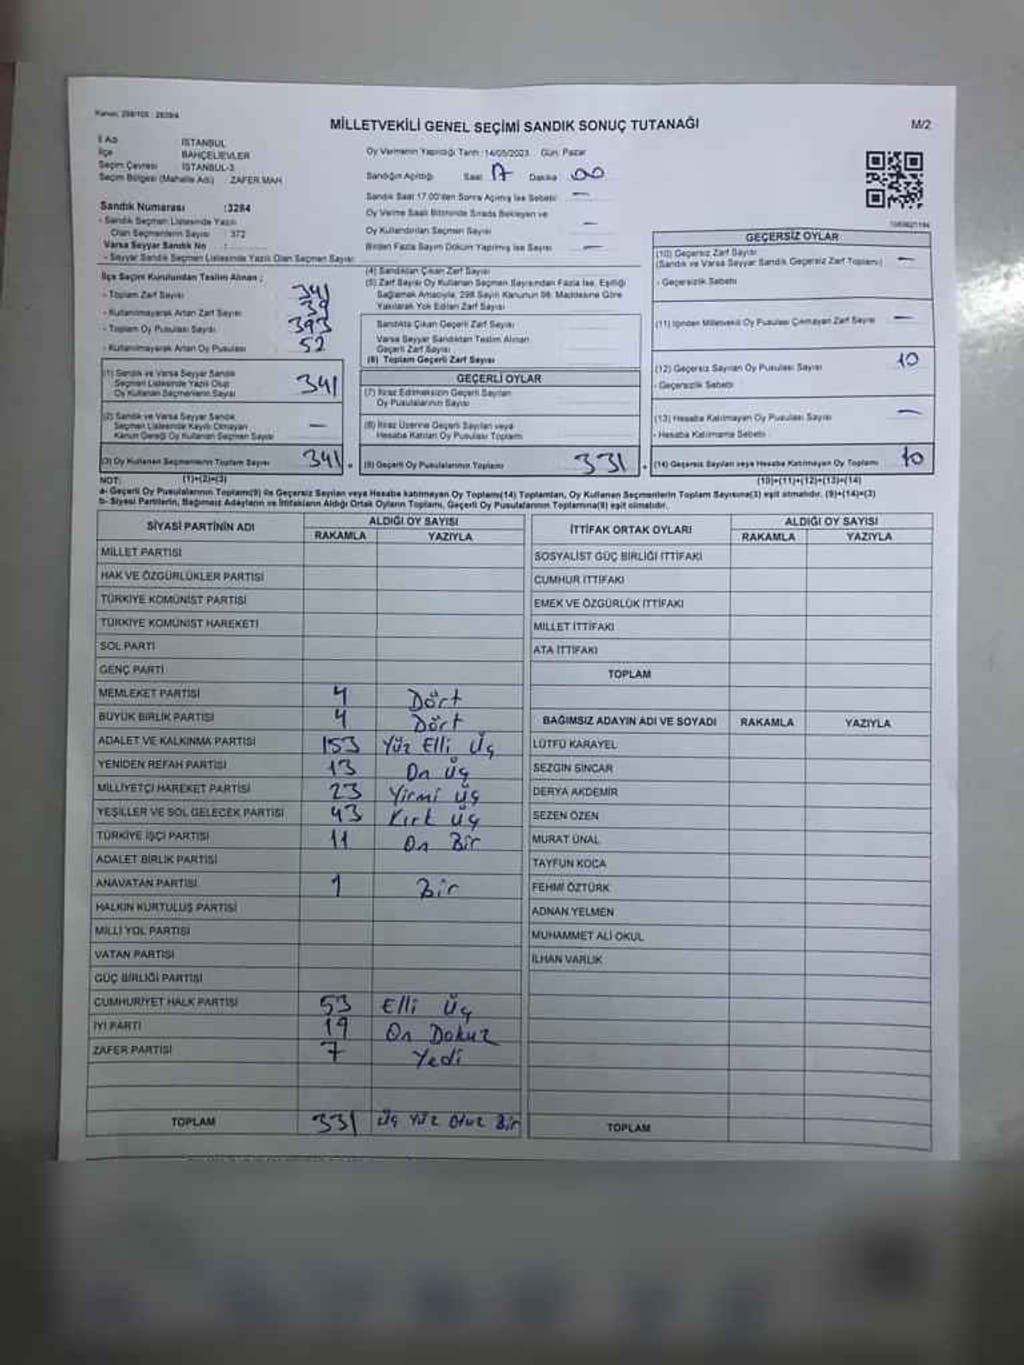 Kanun: 298/105 : 2839/4
MİLLETVEKİLİ GENEL SEÇİMİ SANDIK SONUÇ TUTANAĞI
M/2
İl Adı İSTANBUL
İlçe BAHÇELİEVLER
Seçim Çevresi İSTANBUL-3
Seçim Bölgesi (Mahalle Adı) : ZAFER MAH
Oy Vermenin Yapıldığı Tarih : 14/05/2023 Gün: Pazar
Sandığın Açıldığı Saat 17 Dakika 00
Sandık Saat 17.00'den Sonra Açılmış İse Sebebi —
Oy Verme Saati Bitiminde Sırada Bekleyen ve
Oy Kullandırılan Seçmen Sayısı —
Birden Fazla Sayım Döküm Yapılmış İse Sayısı —
Sandık Numarası :3284
- Sandık Seçmen Listesinde Yazılı
Olan Seçmenlerin Sayısı : 372
Varsa Seyyar Sandık No :
- Seyyar Sandık Seçmen Listesinde Yazılı Olan Seçmen Sayısı
İlçe Seçim Kurulundan Teslim Alınan ;
- Toplam Zarf Sayısı 341
- Kullanılmayarak Artan Zarf Sayısı 39
- Toplam Oy Pusulası Sayısı 393
- Kullanılmayarak Artan Oy Pusulası 52
(1) Sandık ve Varsa Seyyar Sandık
Seçmen Listesinde Yazılı Olup
Oy Kullanan Seçmenlerin Sayısı 341
(2) Sandık ve Varsa Seyyar Sandık
Seçmen Listesinde Kayıtlı Olmayan
Kanun Gereği Oy Kullanan Seçmen Sayısı —
(3) Oy Kullanan Seçmenlerin Toplam Sayısı 341
(4) Sandıktan Çıkan Zarf Sayısı
(5) Zarf Sayısı Oy Kullanan Seçmen Sayısından Fazla İse, Eşitliği
Sağlamak Amacıyla, 298 Sayılı Kanunun 98. Maddesine Göre
Yakılarak Yok Edilen Zarf Sayısı
Sandıkta Çıkan Geçerli Zarf Sayısı
Varsa Seyyar Sandıktan Teslim Alınan
Geçerli Zarf Sayısı
(6) Toplam Geçerli Zarf Sayısı
GEÇERLİ OYLAR
(7) İtiraz Edilmeksizin Geçerli Sayılan
Oy Pusulalarının Sayısı
(8) İtiraz Üzerine Geçerli Sayılan veya
Hesaba Katılan Oy Pusulası Toplamı
(9) Geçerli Oy Pusulalarının Toplamı 331
GEÇERSİZ OYLAR
(10) Geçersiz Zarf Sayısı
(Sandık ve Varsa Seyyar Sandık Geçersiz Zarf Toplamı) —
- Geçersizlik Sebebi
(11) İçinden Milletvekili Oy Pusulası Çıkmayan Zarf Sayısı —
(12) Geçersiz Sayılan Oy Pusulası Sayısı 10
- Geçersizlik Sebebi
(13) Hesaba Katılmayan Oy Pusulası Sayısı —
- Hesaba Katılmama Sebebi
(14) Geçersiz Sayılan veya Hesaba Katılmayan Oy Toplamı 10
NOT: (1)+(2)=(3)
(10)+(11)+(12)+(13)=(14)
a- Geçerli Oy Pusulalarının Toplamı(9) ile Geçersiz Sayılan veya Hesaba katılmayan Oy Toplamı(14) Toplamları, Oy Kullanan Seçmenlerin Toplam Sayısına(3) eşit olmalıdır. (9)+(14)=(3)
b- Siyasi Partilerin, Bağımsız Adayların ve İttifakların Aldığı Ortak Oyların Toplamı, Geçerli Oy Pusulalarının Toplamına(9) eşit olmalıdır.
SİYASİ PARTİNİN ADI ALDIĞI OY SAYISI
RAKAMLA YAZIYLA
MİLLET PARTİSİ
HAK VE ÖZGÜRLÜKLER PARTİSİ
TÜRKİYE KOMÜNİST PARTİSİ
TÜRKİYE KOMÜNİST HAREKETİ
SOL PARTİ
GENÇ PARTİ
MEMLEKET PARTİSİ 4 Dört
BÜYÜK BİRLİK PARTİSİ 4 Dört
ADALET VE KALKINMA PARTİSİ 153 Yüz Elli Üç
YENİDEN REFAH PARTİSİ 13 On üç
MİLLİYETÇİ HAREKET PARTİSİ 23 Yirmi üç
YEŞİLLER VE SOL GELECEK PARTİSİ 43 Kırk üç
TÜRKİYE İŞÇİ PARTİSİ 11 On Bir
ADALET BİRLİK PARTİSİ
ANAVATAN PARTİSİ 1 Bir
HALKIN KURTULUŞ PARTİSİ
MİLLİ YOL PARTİSİ
VATAN PARTİSİ
GÜÇ BİRLİĞİ PARTİSİ
CUMHURİYET HALK PARTİSİ 53 Elli Üç
İYİ PARTİ 19 On Dokuz
ZAFER PARTİSİ 7 Yedi
TOPLAM 331 Üç Yüz Otuz Bir
İTTİFAK ORTAK OYLARI ALDIĞI OY SAYISI
RAKAMLA YAZIYLA
SOSYALİST GÜÇ BİRLİĞİ İTTİFAKI
CUMHUR İTTİFAKI
EMEK VE ÖZGÜRLÜK İTTİFAKI
MİLLET İTTİFAKI
ATA İTTİFAKI
TOPLAM
BAĞIMSIZ ADAYIN ADI VE SOYADI RAKAMLA YAZIYLA
LÜTFÜ KARAYEL
SEZGİN SİNCAR
DERYA AKDEMİR
SEZEN ÖZEN
MURAT ÜNAL
TAYFUN KOCA
FEHMİ ÖZTÜRK
ADNAN YELMEN
MUHAMMET ALİ OKUL
İLHAN VARLIK
TOPLAM